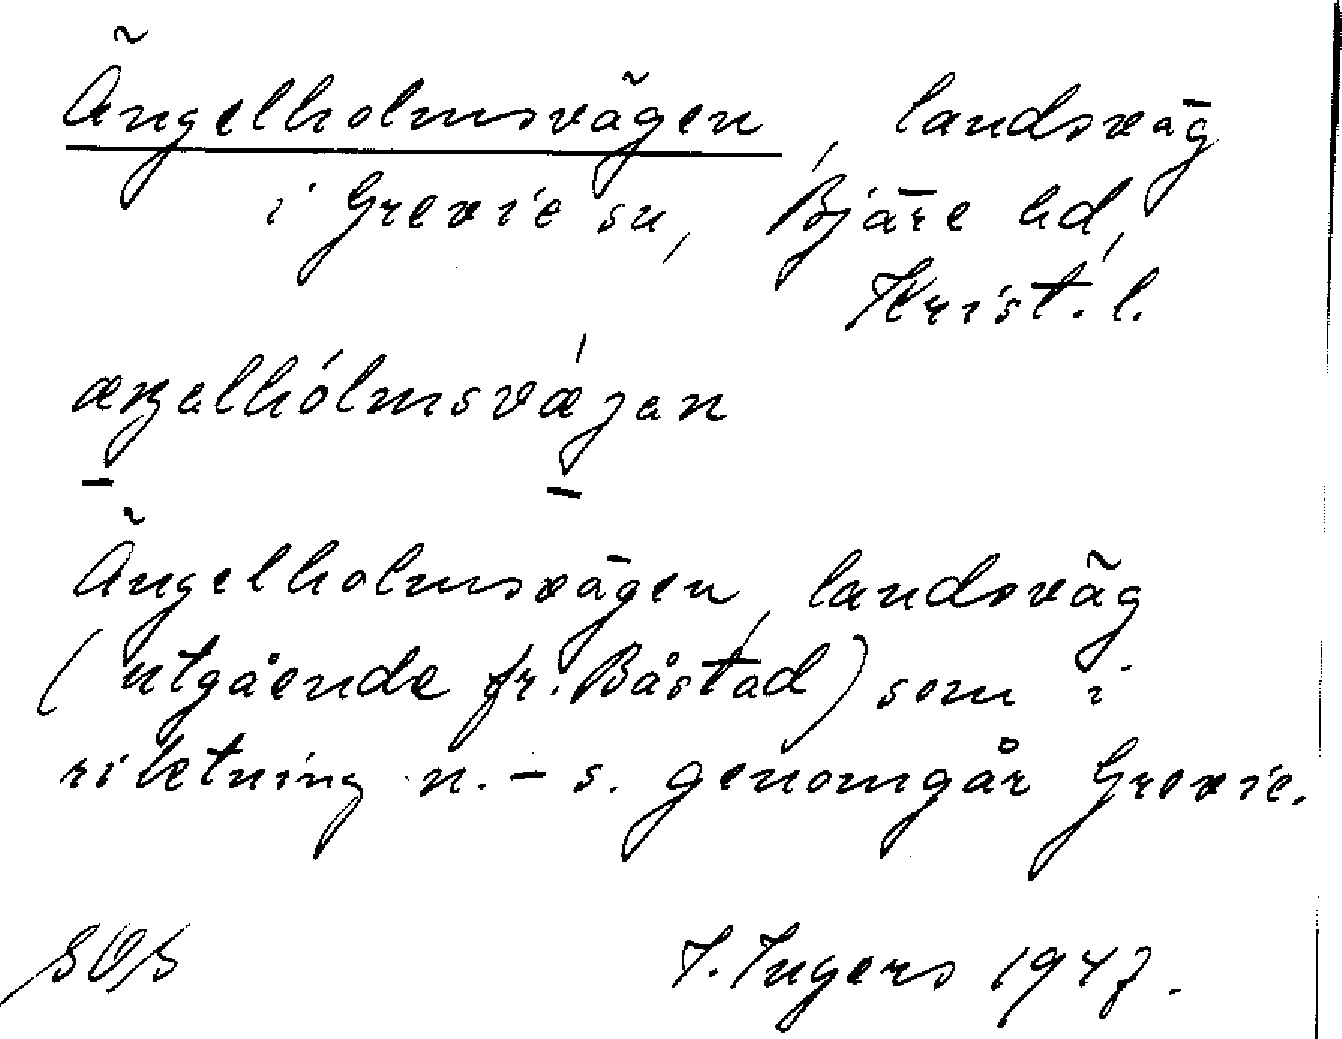 Ängelholmsvägen, landsväg
i Grevie sn, Bjäre hd,
Krist. l.
æŋəlhólmsvæ̀gən
Ängelholmsvägen, landsväg
(utgående fr. Båstad) som i
riktning n. – s. genomgår Grevie.
SOS I. Ingers 1947.